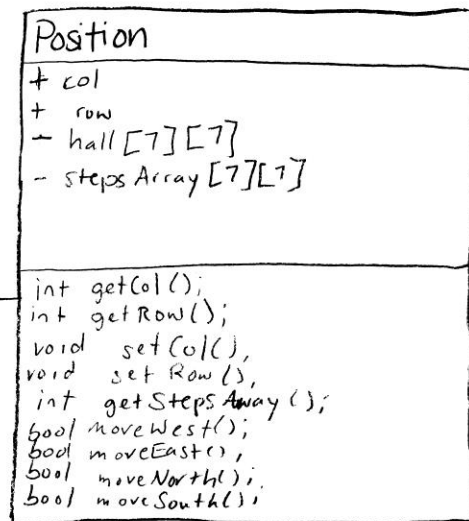 Position
+ col
+ row
- hall[7][7]
- steps Array[7][7]
int getCol();
int getRow();
void setCol(),
void set Row(),
int getSteps Away();
bool moveWest();
bool moveEast(),
bool moveNorth();
bool moveSouth();